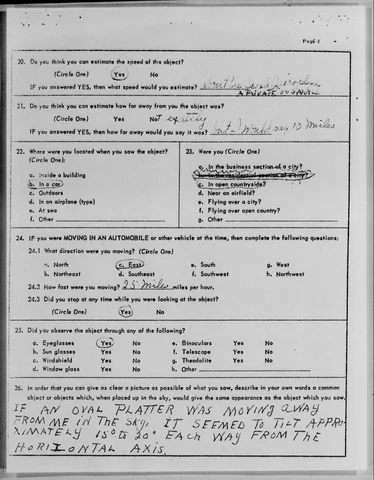 Page 4
20. Do you think you can estimate the speed of the object?
(Circle One) Yes No
IF you answered YES, then what speed would you estimate? about the
A PRIVATE OR
21. Do you think you can estimate how far away from you the object was?
(Circle One) Yes Not exactly
IF you answered YES, then how far away would you say it was? but - I would say 10 miles
22. Where were you located when you saw the object?
(Circle One):
a. Inside a building
b. In a car
c. Outdoors
d. In an airplane (type)
e. At sea
f. Other
23. Were you (Circle One)
a. In the business section of a city?
b. In the residential section of a city?
c. In open countryside?
d. Near an airfield?
e. Flying over a city?
f. Flying over open country?
g. Other
24. IF you were MOVING IN AN AUTOMOBILE or other vehicle at the time, then complete the following questions:
24.1 What direction were you moving? (Circle One)
a. North c. East e. South g. West
b. Northeast d. Southeast f. Southwest h. Northwest
24.2 How fast were you moving? 25 miles miles per hour.
24.3 Did you stop at any time while you were looking at the object?
(Circle One) Yes No
25. Did you observe the object through any of the following?
a. Eyeglasses Yes No e. Binoculars Yes No
b. Sun glasses Yes No f. Telescope Yes No
c. Windshield Yes No g. Theodolite Yes No
d. Window glass Yes No h. Other
26. In order that you can give as clear a picture as possible of what you saw, describe in your own words a common
object or objects which, when placed up in the sky, would give the same appearance as the object which you saw.
IF AN OVAL PLATTER WAS MOVING AWAY
FROM ME IN THE SKY, IT SEEMED TO TILT APPRO-
XIMATELY 15° to 20° EACH WAY FROM THE
HORIZONTAL AXIS.